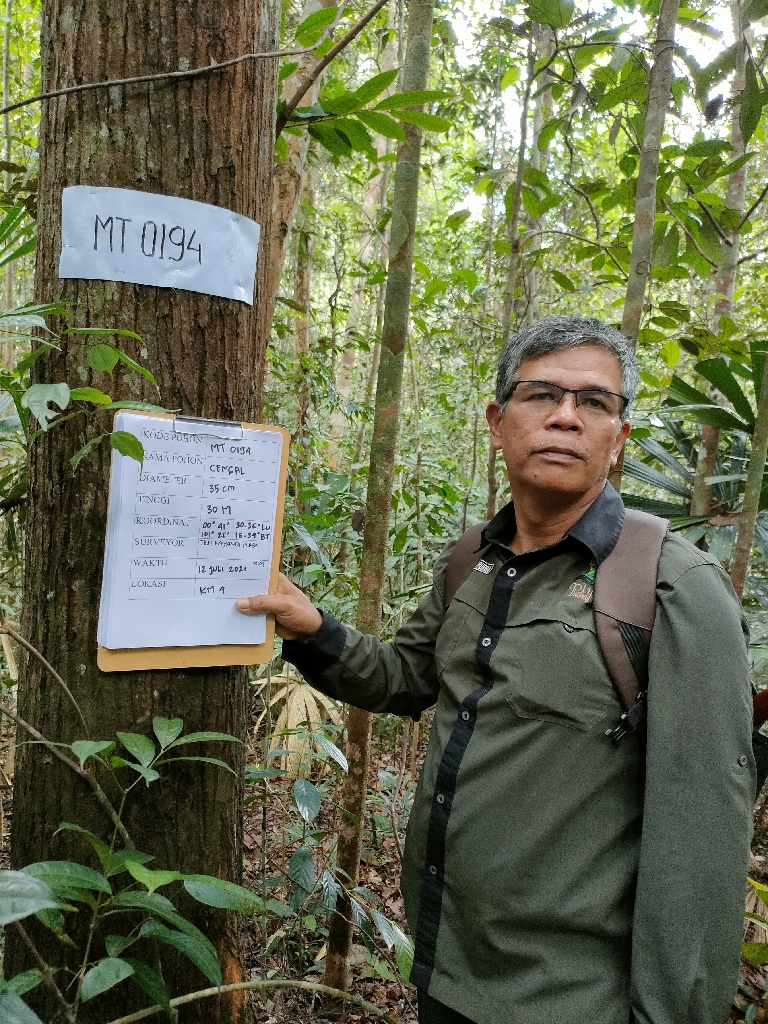 MT 0194
KODE POHON MT 0194
NAMA POHON CENGAL
DIAMETER 35 cm
TINGGI 30 M
KOORDINAT 00° 41' 30.36" LU
101° 21' 15.39" BT
SURVEYOR
WAKTU 12 JULI 2021
LOKASI KM 4